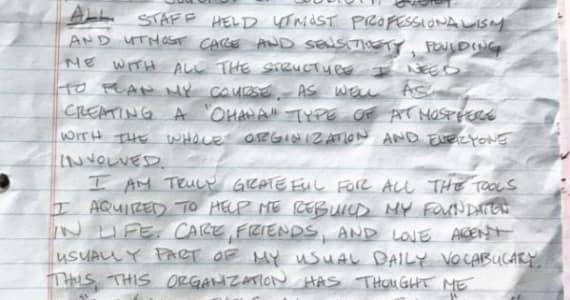 ALL STAFF HELD UTMOST PROFESSIONALISM
AND UTMOST CARE AND SENSITIVITY,
ME WITH ALL THE STRUCTURE I NEED
TO PLAN MY COURSE. AS WELL AS
CREATING A "OHANA" TYPE OF ATMOSPHERE
WITH THE WHOLE ORGINIZATION AND EVERYONE
INVOLVED.
I AM TRULY GRATEFUL FOR ALL THE TOOLS
I AQUIRED TO HELP ME REBUILD MY FOUNDATION
IN LIFE. CARE, FRIENDS, AND LOVE ARENT
USUALLY PART OF MY USUAL DAILY VOCABULARY.
THIS, THIS ORGANIZATION HAS THOUGHT ME